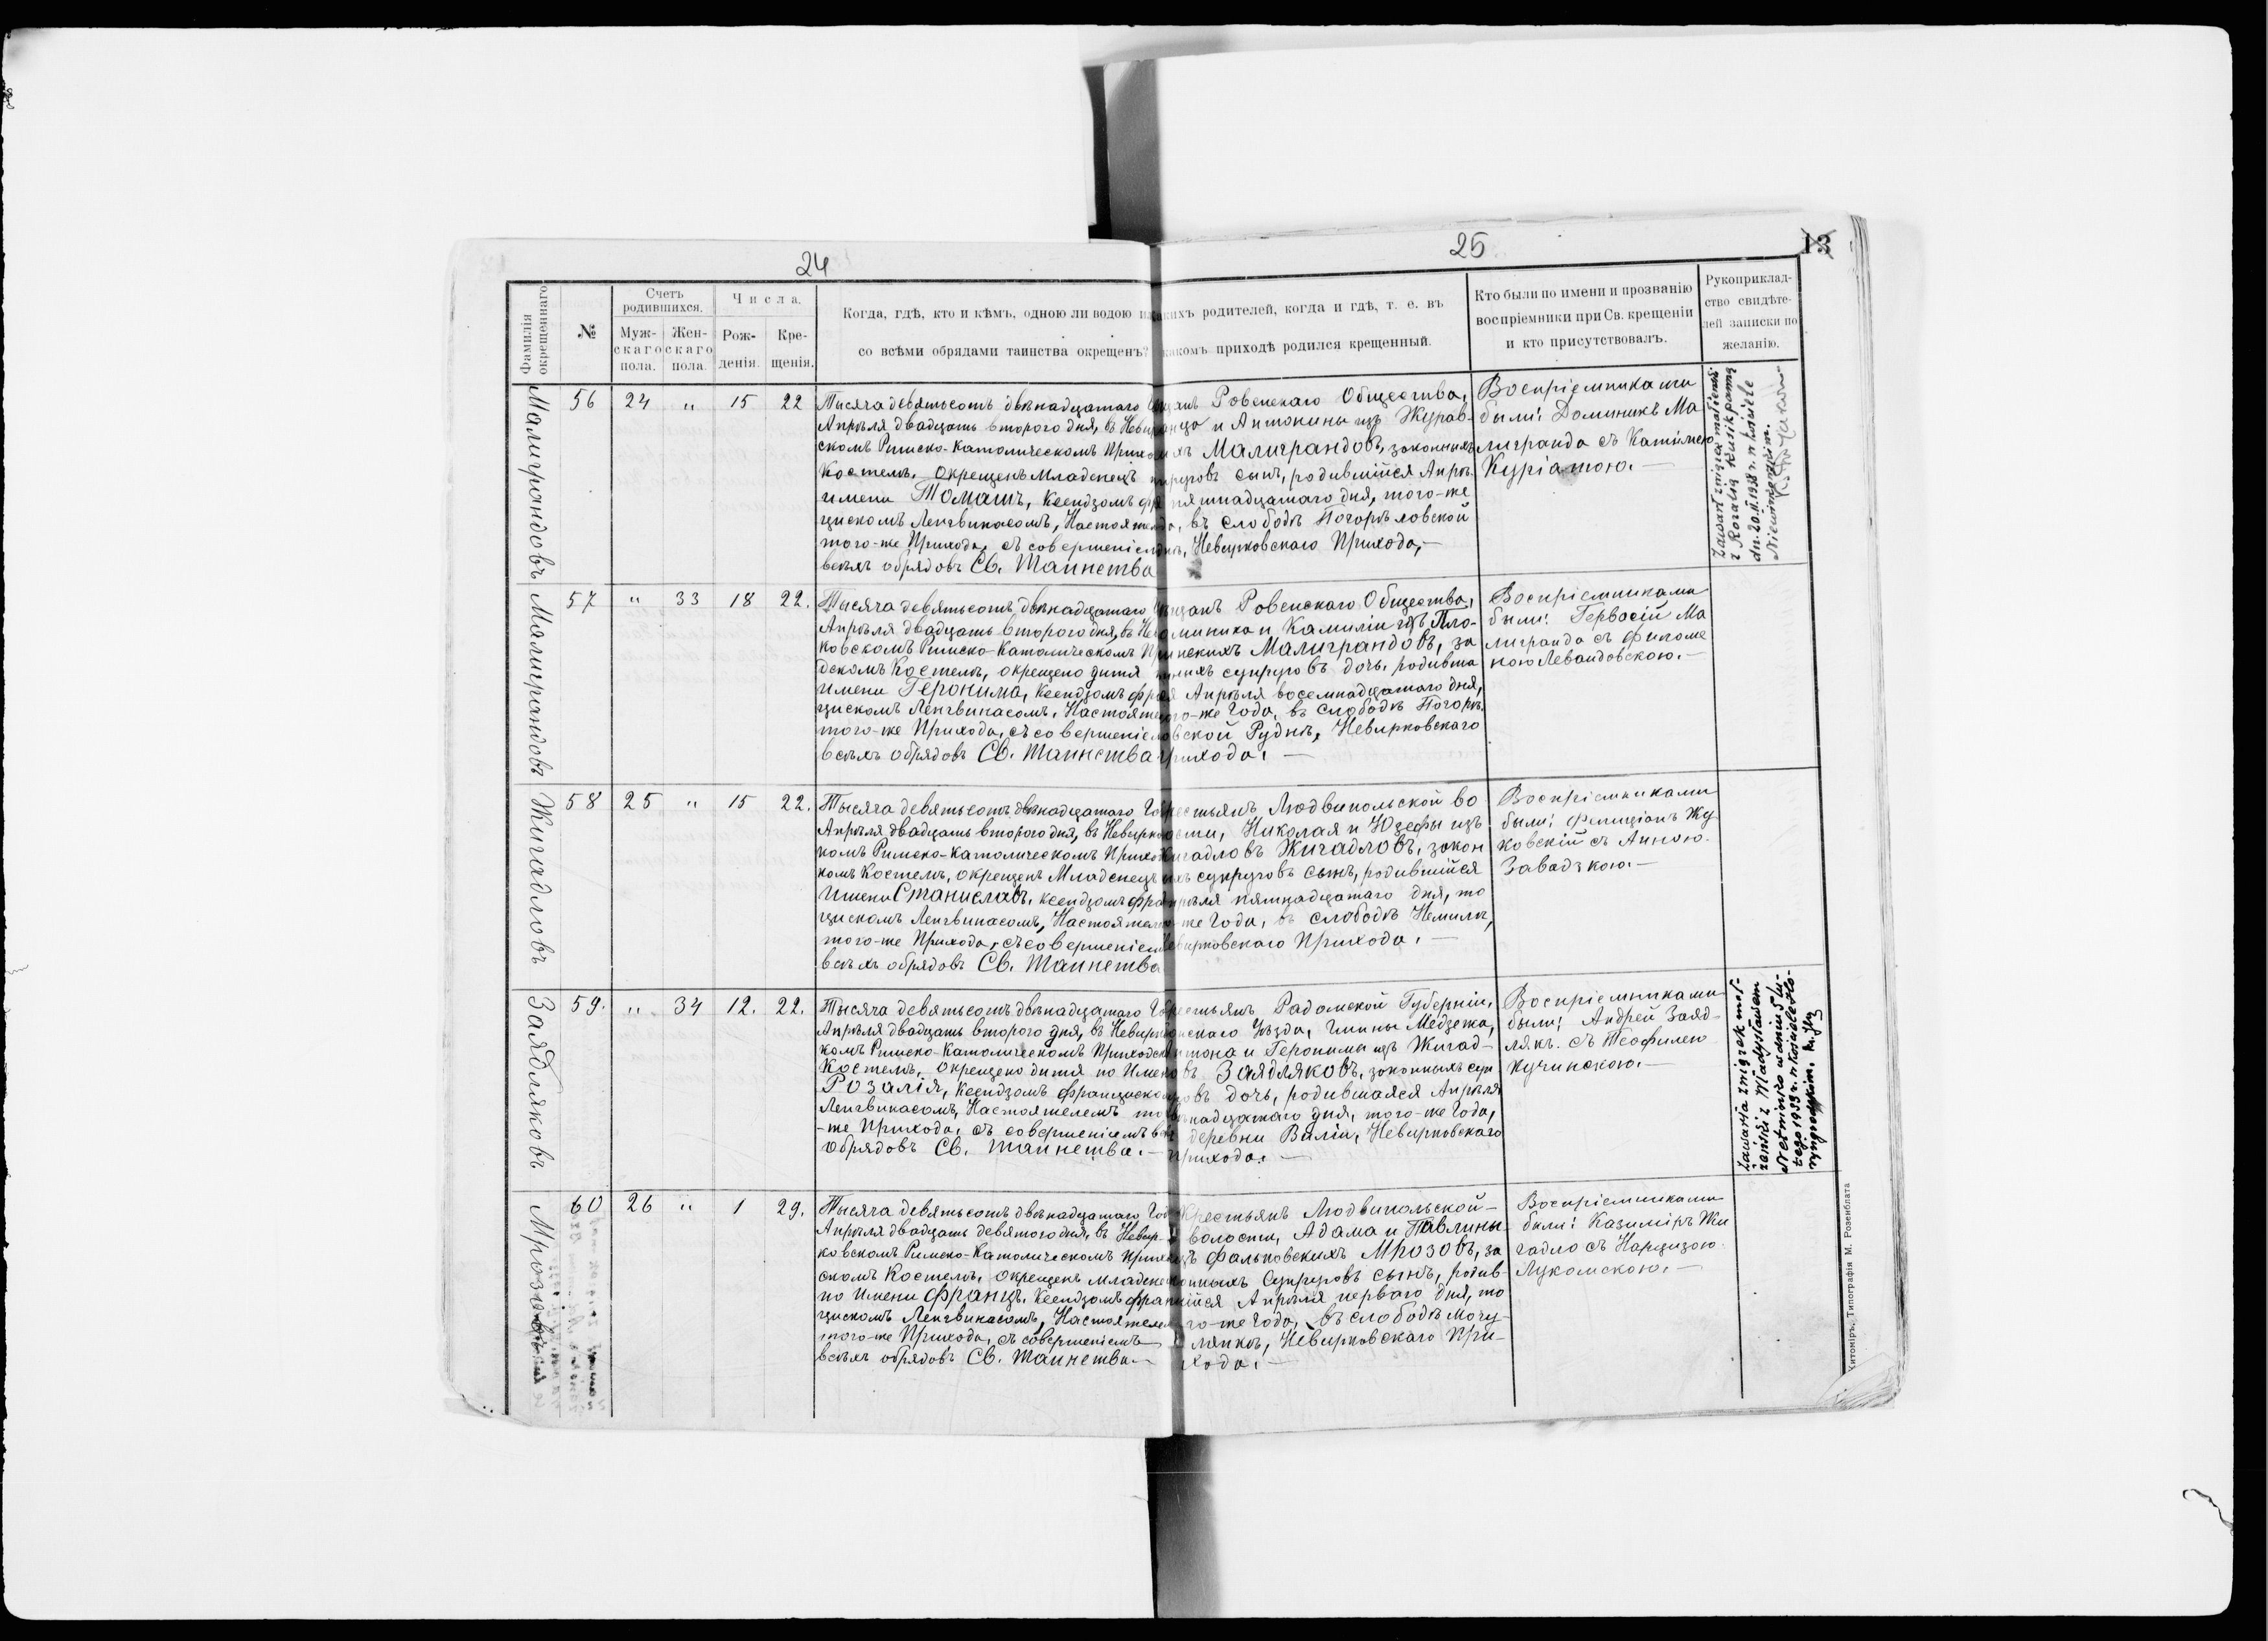 24
25
13
Фамилія окрещеннаго.
№
Счетъ родившихся.
Муж-
скаго
пола.
Жен-
скаго
пола.
Числа.
Рож-
денія.
Кре-
щенія.
Когда, гдѣ, кто и кѣмъ, одною ли водою и
со всѣми обрядами таинства окрещенъ?
какихъ родителей, когда и гдѣ, т. е. въ
какомъ приходѣ родился крещенный.
Кто были по имени и прозванію
воспріемники при Св. крещеніи
и кто присутствовалъ.
Рукоприклад-
ство свидѣте-
лей записки по
желанію.
Малиграндовъ
56 24 " 15 22
Тысяча девятьсотъ двѣнадцатаго
Апрѣля двадцать второго дня, въ Невир
скомъ Римско-Католическомъ Прихо
Костелѣ, окрещенъ Младенецъ
имени Томашъ, Ксендзомъ Фра
цискомъ Ленгвинасомъ, Настояте
того-же Прихода, съ совершеніем
всѣхъ обрядовъ Св. Таинства
щанъ Ровенскаго Общества,
и Антонины изъ Журав-
Малиграндовъ, законныхъ
супруговъ сынъ, родившійся Апрѣ-
ля пятнадцатаго дня, того-же
, въ слободѣ Погорѣловской
, Невирковскаго Прихода,—
Воспріемниками
были: Доминикъ Ма
лигранда съ Камилею
Куріатою.—
Zawarł związek małżeński
z Rozalią Kusik panną
dn. 20.II.1938 r. w kościele
Niewirkowskim.
Малиграндовъ
57 " 33 18 22.
Тысяча девятьсотъ двѣнадцатаго
Апрѣля двадцать второго дня, въ Не
ковскомъ Римско-Католическомъ Пр
дскомъ Костелѣ, окрещено дитя
имени Геронима, Ксендзомъ Фра
цискомъ Ленгвинасомъ, Настояте
того-же Прихода, съ совершеніе
всѣхъ обрядовъ Св. Таинства
щанъ Ровенскаго Общества,
Доминика и Камиліи изъ Пло-
нскихъ Малиграндовъ, за
конныхъ супруговъ дочь, родивша
яся Апрѣля восемнадцатаго дня,
того-же Года, въ слободѣ Погорѣ
ловской Руднѣ, Невирковскаго
Прихода.—
Воспріемниками
были: Гервасій Ма
лигранда съ Филоме
ною Левандовскою.—
Жигадловъ
58 25 " 15 22.
Тысяча девятьсотъ двѣнадцатаго Го
Апрѣля двадцать второго дня, въ Невирко
комъ Римско-Католическомъ Прихо
комъ Костелѣ, окрещенъ Младенецъ
Имени Станиславъ, Ксендзомъ Фра
цискомъ Ленгвинасомъ, Настояте
того-же Прихода, съ совершеніем
всѣхъ обрядовъ Св. Таинства
крестьянъ Людвипольской во
лости, Николая и Юзефы изъ
Жигадловъ Жигадловъ, закон
ныхъ супруговъ сынъ, родившійся
Апрѣля пятнадцатаго дня, то
го-же Года, въ слободѣ Немили,
Невирковскаго Прихода.—
Воспріемниками
были: Фелиціанъ Жу
ковскій съ Анною
Завадзкою.—
Заядляковъ
59. " 34 12. 22.
Тысяча девятьсотъ двѣнадцатаго Го
Апрѣля двадцать второго дня, въ Невирков
комъ Римско-Католическомъ Приходск
Костелѣ, окрещено дитя по Имени
Розалія, Ксендзомъ Францискомъ
Ленгвинасомъ, Настоятелемъ то
-же Прихода, съ совершеніемъ всѣ
обрядовъ Св. Таинства.—
крестьянъ Радомской Губерніи,
нскаго Уѣзда, Гмины Медзежа,
Антона и Геронимы изъ Жигад-
ловъ Заядляковъ, законныхъ суп
руговъ дочь, родившаяся Апрѣля
двѣнадцатаго дня, того-же Года,
деревни Валіи, Невирковскаго
Прихода.—
Воспріемниками
были: Андрей Заяд-
лякъ съ Теофилею
Кучинскою.—
Zawarła związek mał-
żeński z Władysławem
w dniu 5 lu-
tego 1933 r. w kościele
Мрозовъ
60 26 " 1 29.
Тысяча девятьсотъ двѣнадцатаго Год
Апрѣля двадцать девятого дня, въ Невир-
ковскомъ Римско-Католическомъ Прихо
скомъ Костелѣ, окрещенъ Младене
по Имени Францъ, Ксендзомъ Фран
цискомъ Ленгвинасомъ, Настоятеле
того-же Прихода, съ совершеніемъ
всѣхъ обрядовъ Св. Таинства.—
Крестьянъ Людвипольской—
волости, Адама и Павлины
изъ Фальковскихъ Мрозовъ, за
конныхъ Супруговъ сынъ, родив-
шійся Апрѣля перваго дня, то
го-же Года, въ слободѣ Мочу-
лянкѣ, Невирковскаго При-
хода.—
Воспріемниками
были: Казиміръ Жи
гадло съ Нарцизою
Лукомскою.—
Житоміръ, Типографія М. Розенблата